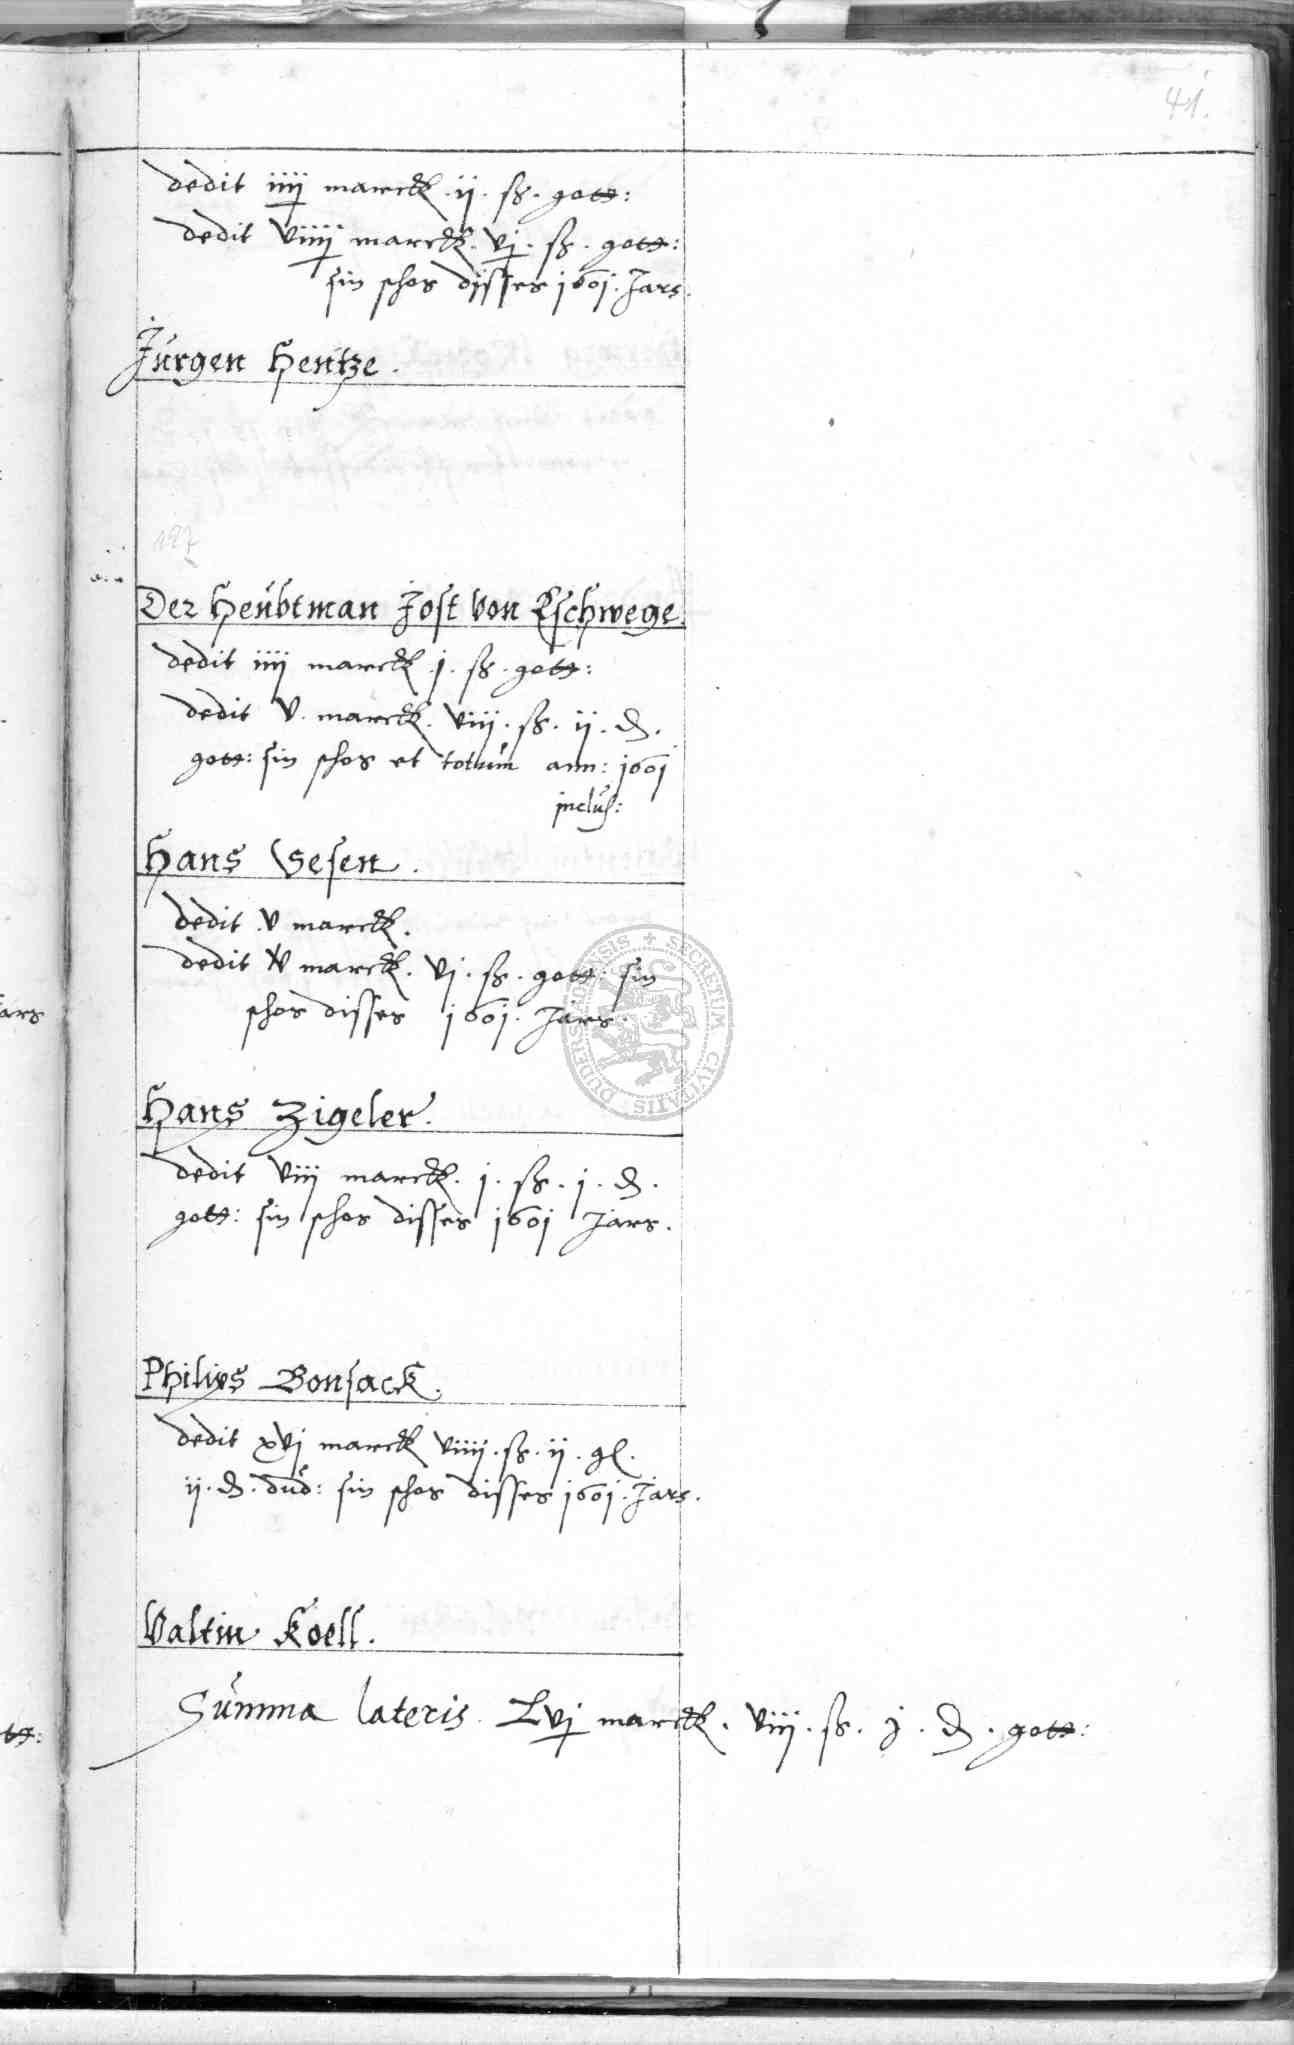 41.
dedit iiij marck. ij. ß. gott:
dedit viiij marck. vj. ß. gott:
sin schos disses 1601. Jars.
Jürgen Hentze.
127
Der Heubtman Jost von Eschwege.
dedit iiij marck. j. ß. gott:
dedit v. marck. viij. ß. ij. d.
gott: sin schos et totum ann: 1601
inclus:
Hans Vesen.
dedit v marck.
dedit v marck. vj. ß. gott: sin
schos disses 1601. Jars.
Hans Zigeler.
dedit viij marck. j. ß. j. d.
gott: sin schos disses 1601 Jars.
Philips Bonsack.
dedit xvj marck viiij. ß. ij. gl.
ij. d. dud: sin schos disses 1601. Jars.
Valtin Koell.
Summa lateris. Lvj marck. viij. ß. j. d. gott:
SECRETUM CIVITATIS DUDERSTADENSIS